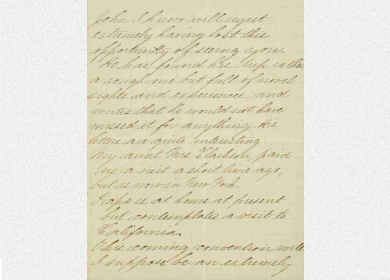 John I know will regret
extremely having lost this
opportunity of seeing you.
He has found his trip rather
a rough one but full of novel
sights and experiences and
writes that he would not have
missed it for anything. His
letters are quite interesting.
My aunt Mrs Clarkson, paid
us a visit a short time ago,
but is now in New York.
Papa is at home at present
but contemplates a visit to
California.
This coming convention will
I suppose be an extremely